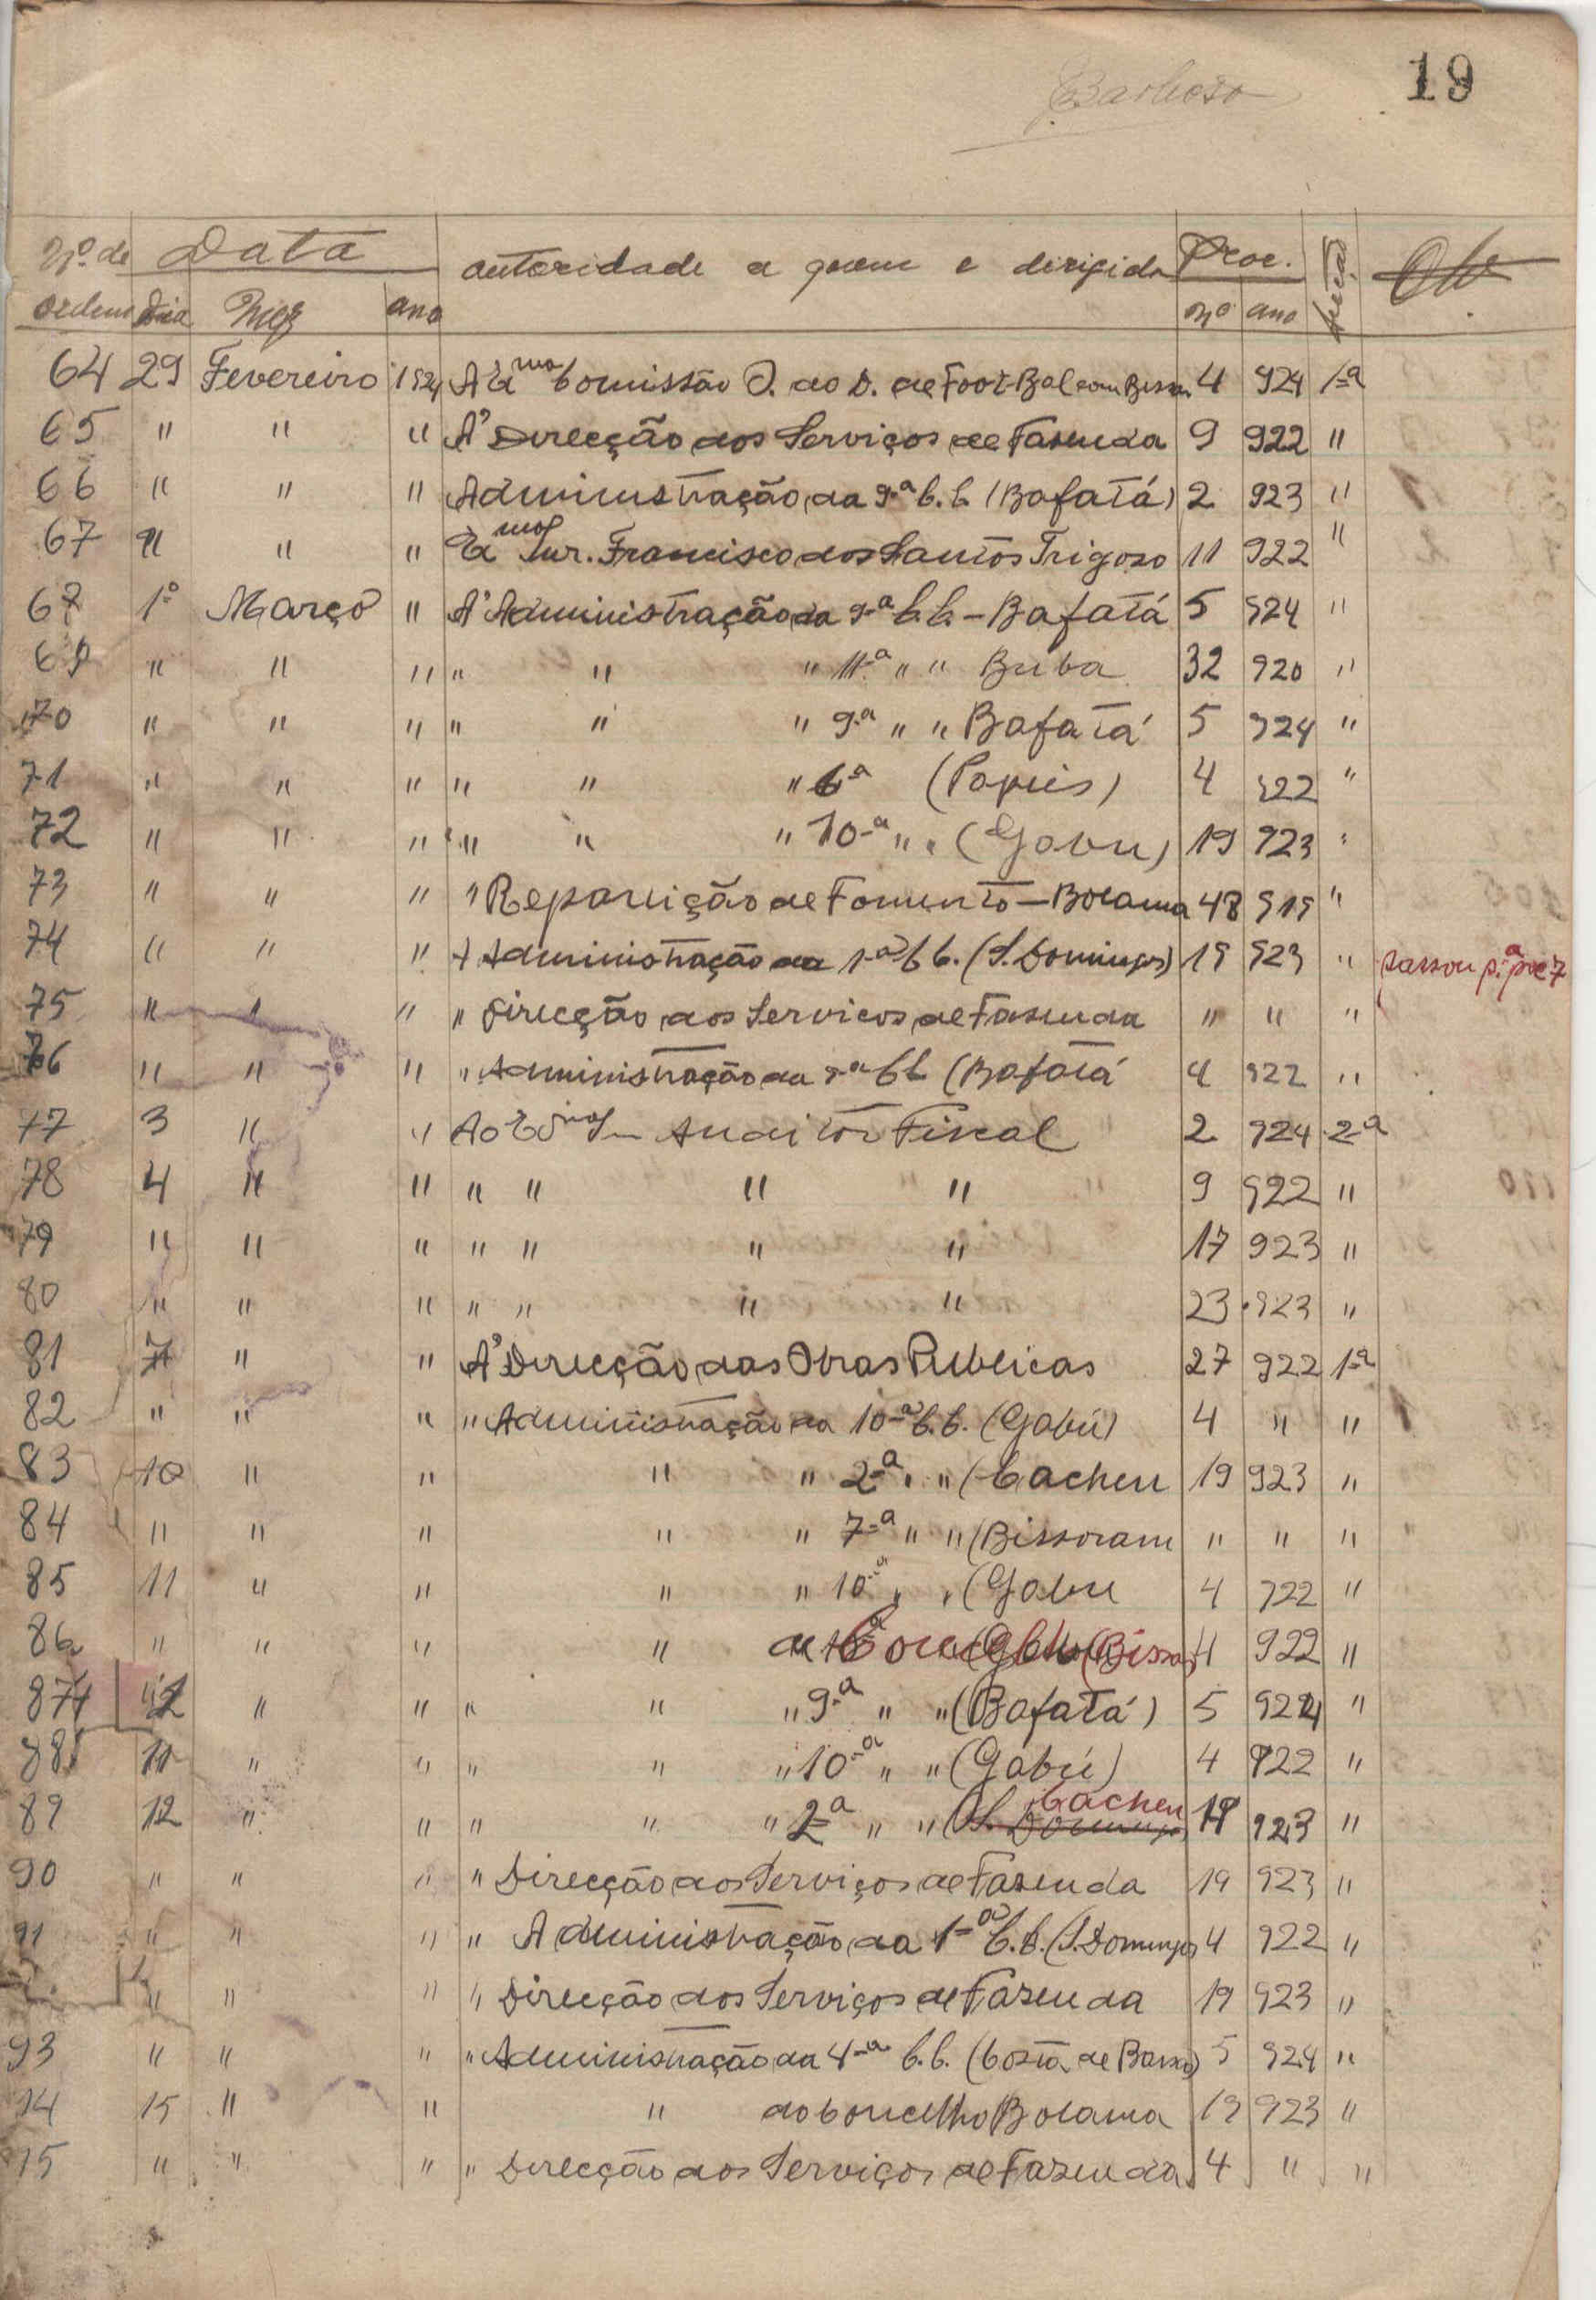 19
Barbosa
Nº de Data autoridade a quem e dirigida Proc. Obs
ordem Dia Mez ano nº ano
64 29 Fevereiro 1924 A Exma Comissão D. do D. de Foot-Bal em Bissau 4 924 1-a
65 " " " A' Direcção dos Serviços de Fazenda 9 922 "
66 " " " Administração da 9-a C.C. (Bafatá) 2 923 "
67 " " " Exmo Snr. Francisco dos Santos Trigoso 11 922 "
67 1º Março " A' Administração da 9-a C.C. - Bafatá 5 924 "
69 " " " " " " 11-a " " Buba 32 920 "
70 " " " " " " 9-a " " Bafatá 5 924 "
71 " " " " " " 6-a (Papeis) 4 922 "
72 " " " " " " 10-a " " (Gabu) 19 923 "
73 " " " " Repartição de Fomento - Bolama 48 919 "
74 " " " A Administração da 1-a C C. (S. Domingos) 19 923 " passou p.a prc 7
75 " " " " Direcção dos Servicos de Fazenda " " "
76 " " " " Administração da 9-a C C (Bafatá 4 922 "
77 3 " " Ao Exmo Sr Auditor Fiscal 2 924 2-a
78 4 " " " " " " 9 922 "
79 " " " " " " " 17 923 "
80 " " " " " " " 23 923 "
81 7 " " A' Direcção das Obras Publicas 27 922 1-a
82 " " " " Administração da 10-a C.C. (Gabú) 4 " "
83 10 " " " " 2-a " " (Cacheu 19 923 "
84 " " " " " 7-a " " (Bissoram " " "
85 11 " " " " 10-a " " (Gabu 4 922 "
86 " " " " de Concelho (Bissau) 4 922 "
87 12 " " " " " 9-a " " (Bafatá) 5 924 "
88 11 " " " " " 10-a " " (Gabú) 4 922 "
89 12 " " " " " 2-a " " (S. Domingos Cacheu 19 923 "
90 " " " " Direcção dos Serviços de Fazenda 19 923 "
91 " " " " Administração da 1-a C.C. (S. Domingos 4 922 "
" " " " Direcção dos Serviços de Fazenda 19 923 "
93 " " " " Administração da 4-a C.C. (Costa de Baixo) 5 924 "
94 15 " " " do Concelho Bolama 19 923 "
95 " " " " Direcção dos Serviços de Fazenda 4 " "